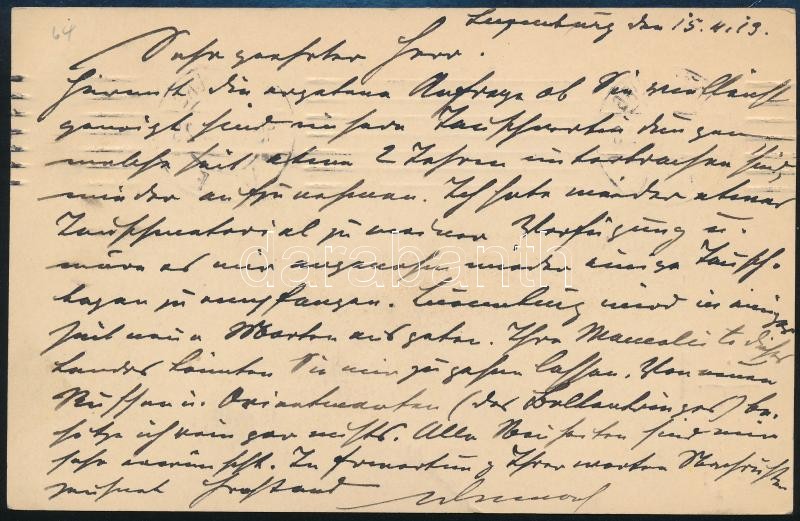 64
Luxemburg den 15.4.13.
Sehr geehrter Herr.
Hiermit die ergebene Anfrage ob Sie vielleicht
geneigt sind unsere Tauschverbindungen
welche seit etwa 2 Jahren unterbrochen sind
wieder aufzunehmen. Ich habe wieder etwas
Tauschmaterial zu meiner Verfügung u.
wäre es mir angenehm wieder einige Tausch-
bogen zu empfangen. Luxemburg wird in einiger
Zeit neue Marken ausgeben. Ihre
Landes könnten Sie mir zugehen lassen. Von neuen
Russen u. Orientmarken (des ) be-
sitze ich rein gar nichts. Alle Neuheiten sind mir
sehr erwünscht. In Erwartung Ihrer werten Nachrichten
zeichnet
darabanth